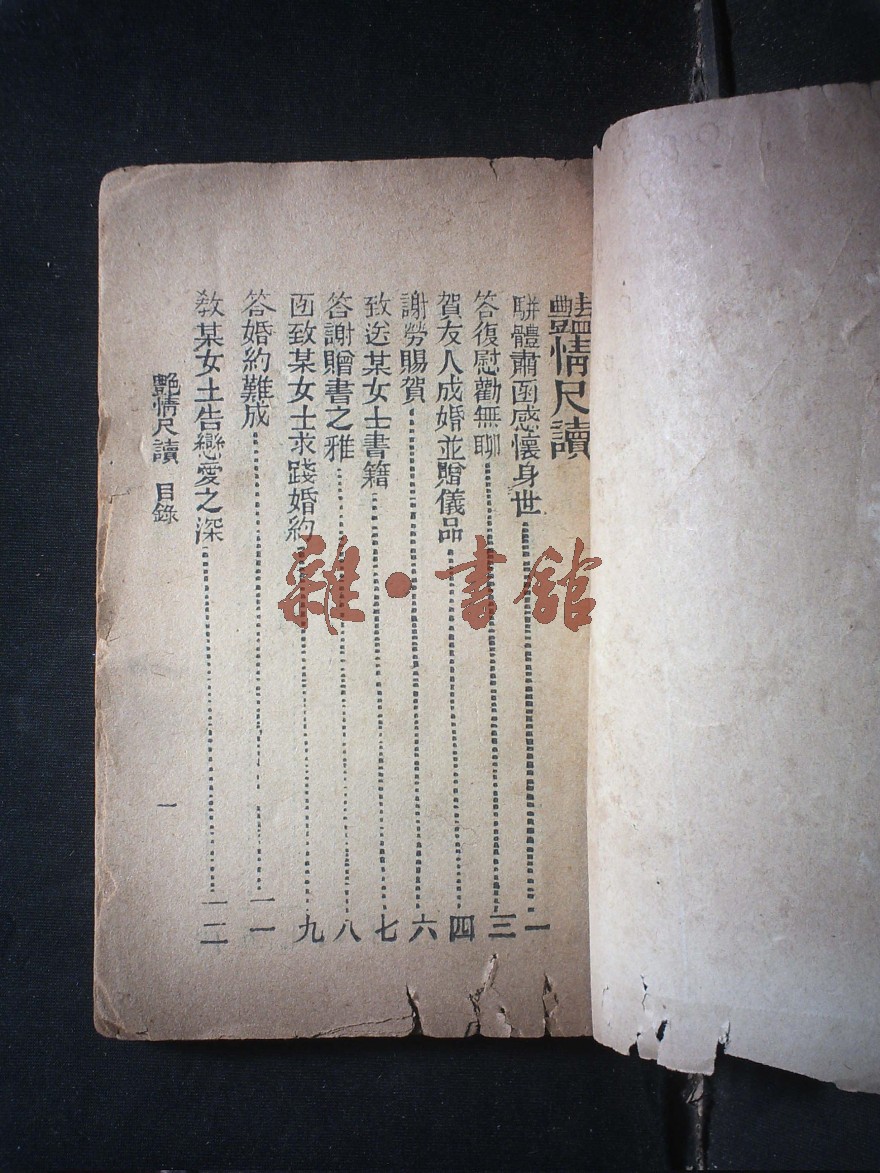 豔情尺讀
駢體肅函感懷身世 一
答復慰勸無聊 三
賀友人成婚並贈儀品 四
謝勞賜賀 六
致送某女士書籍 七
答謝贈書之雅 八
函致某女士求踐婚約 九
答婚約難成 一一
敎某女士告戀愛之深 一二
艷情尺讀 目錄
一
雜·書館